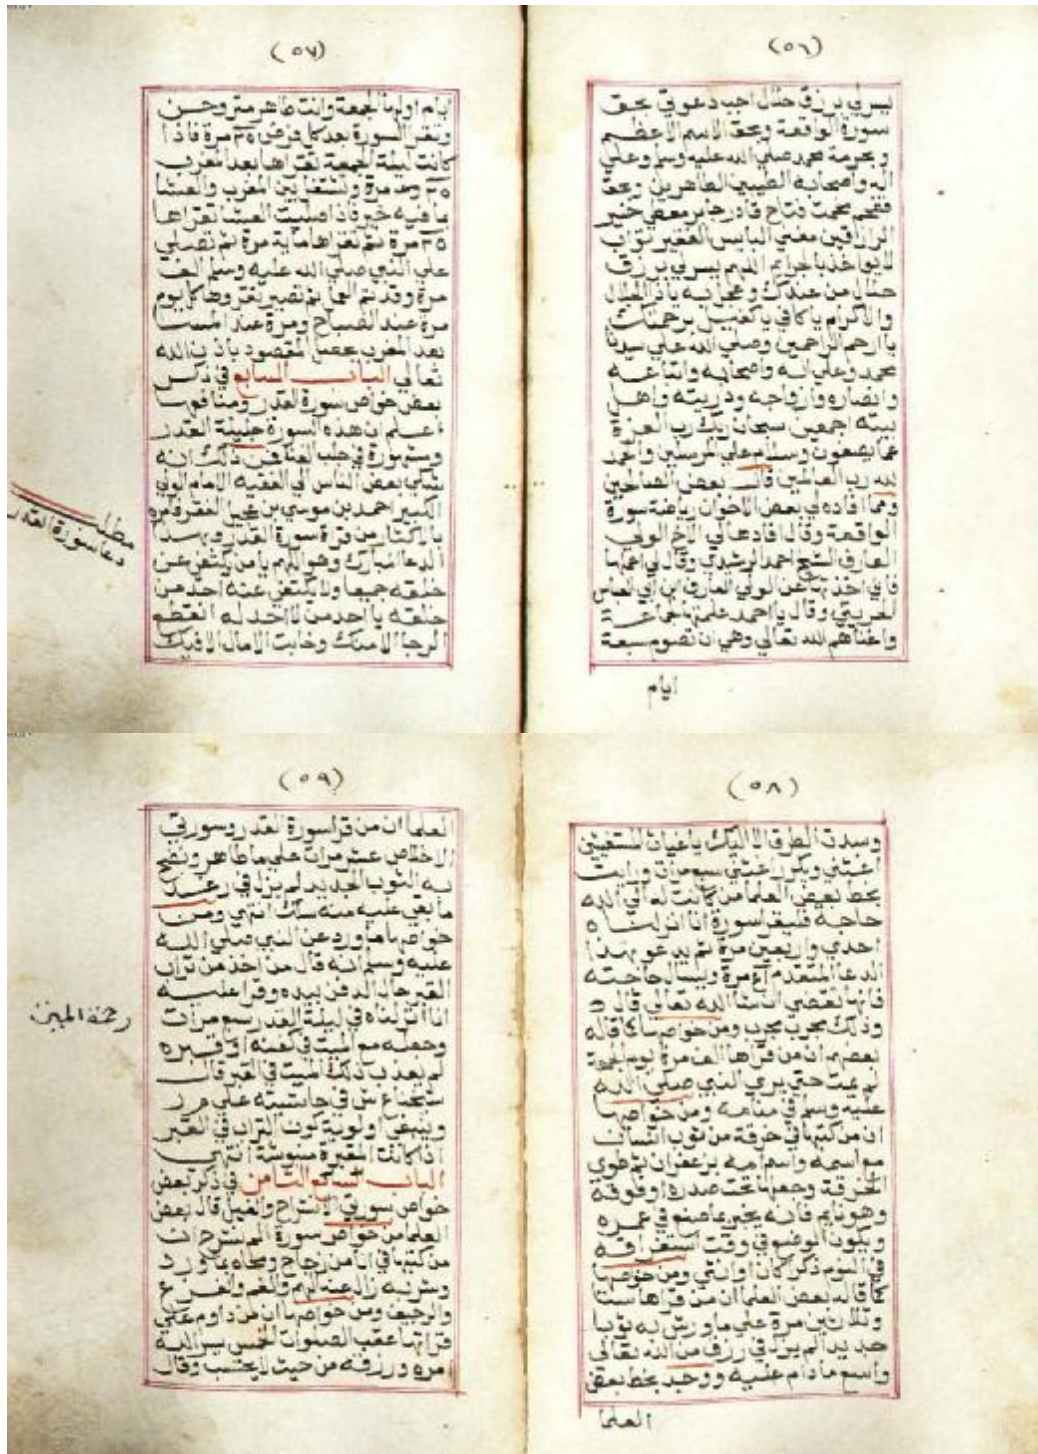 (٥٦)
يسر لي برزق حلال اجب دعوتي بحق
سورة الواقعة وبحق الاسم الاعظم
وبحرمة محمد صلي الله عليه وسلم وعلي
اله واصحابه الطيبين الطاهرين وبحق
فتاح قادر جابر معطي خير
الرازقين مغني البايس الفقير تواب
لا يواخذ بالجرايم اللهم يسر لي برزق
حلال من عندك وعجل به ياذا الجلال
والاكرام يا كافي يا كفيل برحمتك
يا ارحم الراحمين وصلي الله علي سيدنا
محمد وعلي اله واصحابه واتباعه
وانصاره وازواجه وذريته واهل
بيته اجمعين سبحان ربك رب العزة
عما يصفون وسلام علي المرسلين والحمد
لله رب العالمين قال بعض الصالحين
ومما افاده لي بعض الاخوان رياضة سورة
الواقعة وقال افادها لي الاخ الولي
العارف الشيخ احمد الرشيدي وقال لي
فاني اخذتها عن الولي العارف ابن ابي العباس
وقال يا احمد علمتها جماعة
واغناهم الله تعالي وهي ان تصوم سبعة
ايام
(٥٧)
ايام اولها الجمعة وانت طاهر متروحن
وتقرا السورة بعد كل فرض ٢٥ مرة فاذا
كانت ليلة الجمعة تقراها بعد المغرب
٢٥ مرة وتشتغل بين المغرب والعشا
بما فيه خير فاذا صليت العشا تقراها
٢٥ مرة ثم تقراها ماية مرة ثم تصلي
علي النبي صلي الله عليه وسلم الف
مرة وقد تم العمل ثم تصير تقروها كل يوم
مرة عند الصباح ومرة عند المسا
بعد المغرب يحصل المقصود باذن الله
تعالي الباب السابع في ذكر
بعض خواص سورة القدر ومنافعها
اعلم ان هذه السورة جليلة القدر
ومشهورة في جلب الغنا فمن ذلك انه
شكي بعض الناس الي الفقيه الامام الولي
الكبير احمد بن موسي بن عجيل الفقر فامره
بالاكثار من قرة سورة القدر وبهذا
الدعا المبارك وهو اللهم يا من يكتفي عن
خلقه جميعا ولا يكتفي عنه احد من
خلقه يا احد من لا احد له انقطع
الرجا الا منك وخابت الامال الا فيك
مطلب
دعا سورة القدر
(٥٨)
وسدت الطرق الا اليك يا غياث المستغيثين
اغثني ويكرر اغثني سبع مرات ورايت
بخط بعض العلما من كانت له الي الله
حاجة فليقرا سورة انا انزلناه
احدي واربعين مرة ثم يدعو بهذا
الدعا المتقدم مرة ويسال حاجته
فانها تقضي ان شا الله تعالي قال
وذلك مجرب مجرب ومن خواصها ما قاله
بعضهم ان من قراها الف مرة يوم الجمعة
لم يمت حتي يري النبي صلي الله
عليه وسلم في منامه ومن خواصها
ان من كتبها في خرقة من ثوب انسان
مع اسمه واسم امه بزعفران ثم طوي
الخرقة وجعلها تحت صدره او فوقه
وهو نايم فانه يخبر بما صنع في عمره
ويكون الوضع في وقت استغراقه
في النوم ذكر كان او انثي ومن خواصها
كما قاله بعض العلما ان من قراها ستا
وثلاثين مرة علي ما ورش به ثوبا
جديد الم يزل في رزق من الله تعالي
واسع ما دام عليه ووجد بخط بعض
العلما
(٥٩)
العلما ان من قرا سورة القدر وسورتي
الاخلاص عشر مرات علي ما طاهر ونضح
به الثوب الجديد لم يزل في رغد
ما بقي عليه منه سلك انتهي ومن
خواصها ما ورد عن النبي صلي الله
عليه وسلم انه قال من اخذ من تراب
القبر حال الدفن بيده وقرا عليه
انا انزلناه في ليلة القدر سبع مرات
وجعله مع الميت في كفنه او قبره
لم يعذب ذلك الميت في القبر قال
شيخنا ع ش في حاشيته علي م ر
وينبغي اولوية كون التراب في القبر
اذا كانت المقبرة منبوشة انتهي
الباب الثامن في ذكر بعض
خواص سورتي الانشراح والفيل قال بعض
العلما من خواص سورة الم نشرح ان
من كتبها في انا من زجاج ومحاه بما ورد
وشربه زال عنه الهم والغم والفزع
والرجيف ومن خواصها ان من داوم علي
قراتها عقب الصلوات الخمس يسر الله
امره ورزقه من حيث لا يحتسب وقال